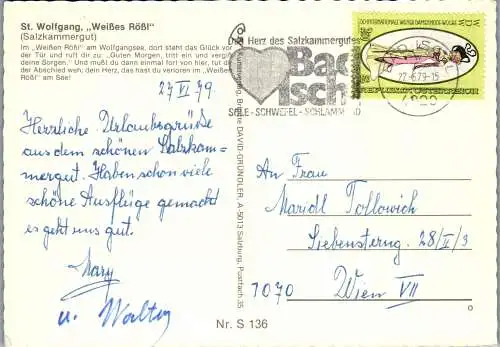 St. Wolfgang, „Weißes Rößl“
(Salzkammergut)
Im „Weißen Rößl“ am Wolfgangsee, dort steht das Glück vor
der Tür und ruft dir zu: „Guten Morgen, tritt ein und vergiß
deine Sorgen.“ Und mußt du dann einmal fort von hier, tut dir
der Abschied weh; dein Herz, das hast du verloren im „Weißen
Rößl“ am See!
27 VI 79
Herrliche Urlaubsgrüße
aus dem schönen Salzkam-
mergut. Haben schon viele
schöne Ausflüge gemacht
es geht uns gut.
Mary
u. Walter
DAVID-GRÜNDLER, A-5013 Salzburg, Postfach 35
Das Herz des Salzkammergutes
Bad
Ischl
SOLE - SCHWEFEL - SCHLAMMBAD
27.-6.79-15
4820
REPUBLIK ÖSTERREICH
An Frau
Maridl Tollowich
Siebensterng. 28/II/3
1070 Wien VII
Nr. S 136